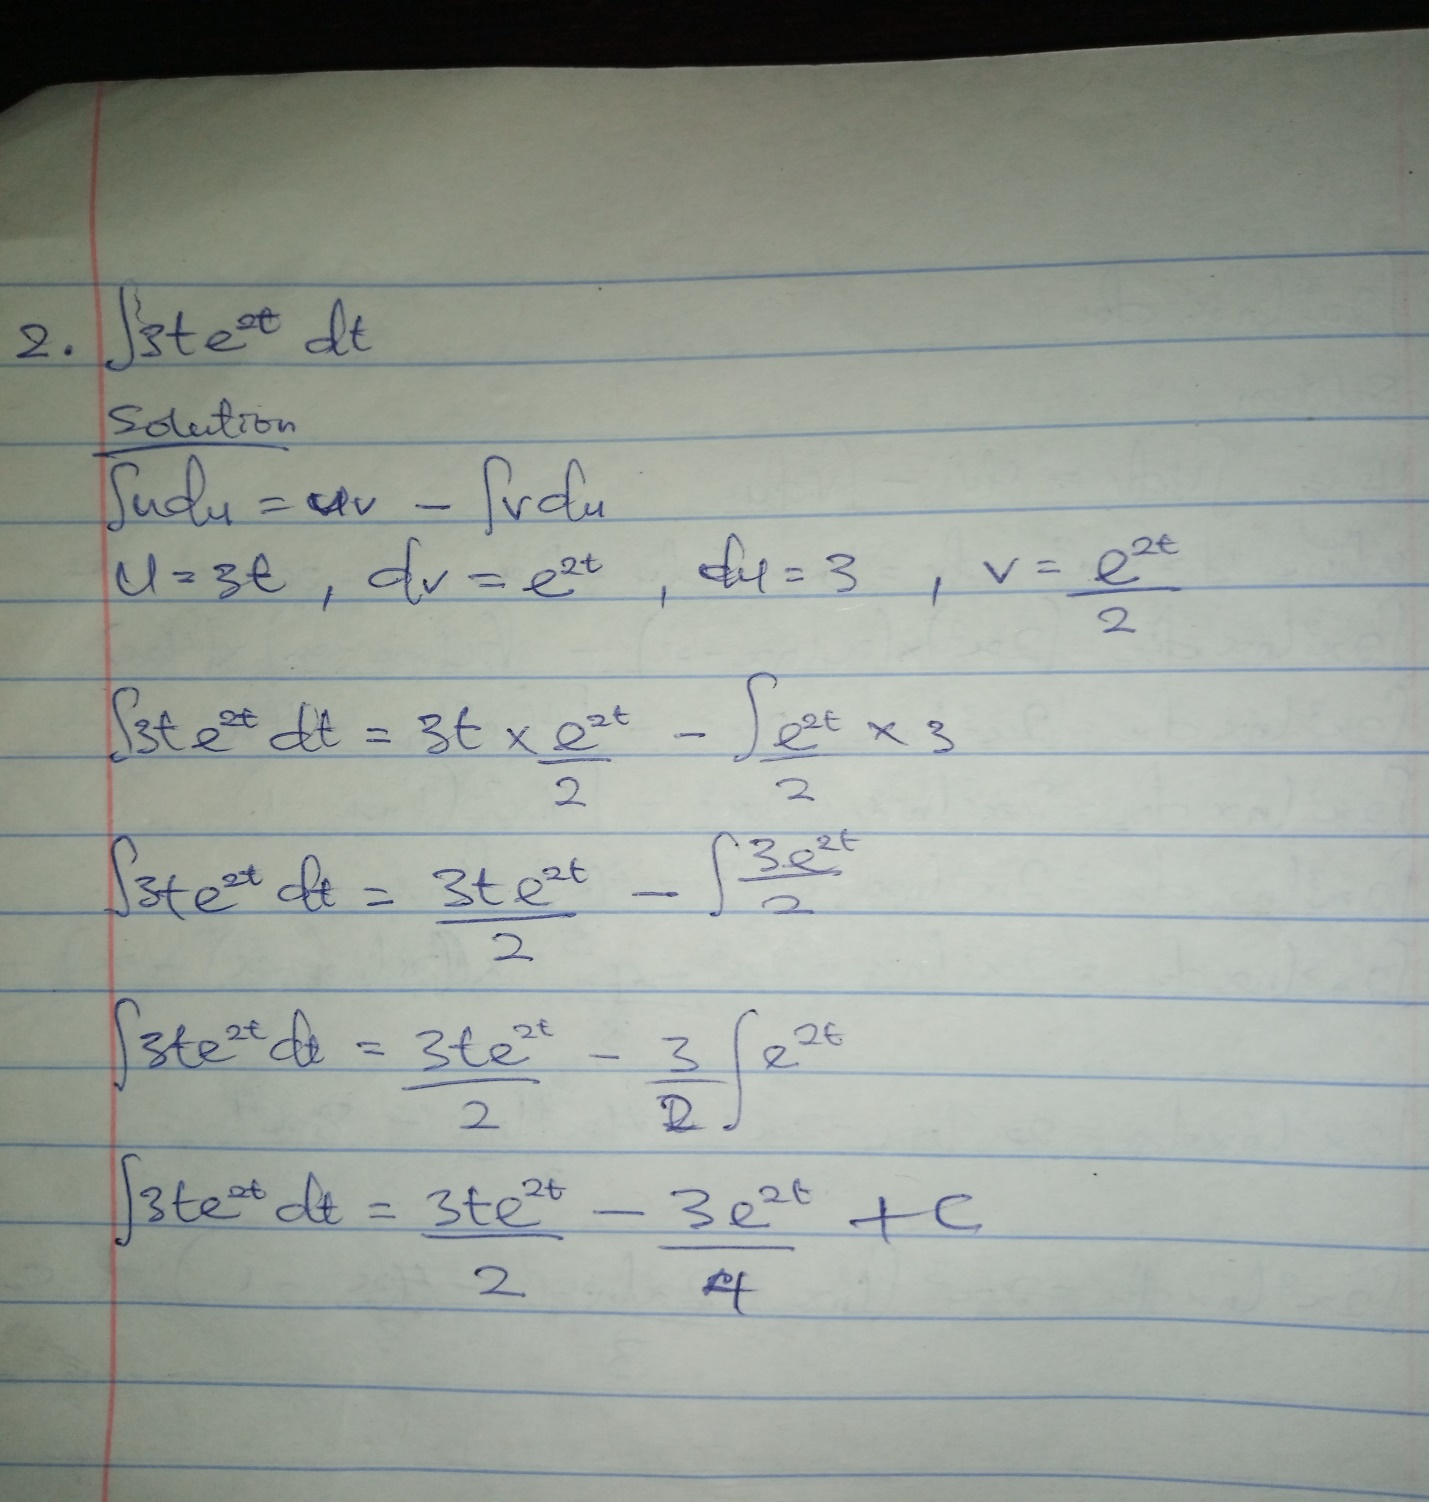 2. ∫3te^2t dt
Solution
∫udu = uv - ∫vdu
u = 3t , dv = e^2t , du = 3 , v = e^2t/2
∫3te^2t dt = 3t × e^2t/2 - ∫e^2t/2 × 3
∫3te^2t dt = 3te^2t/2 - ∫3e^2t/2
∫3te^2t dt = 3te^2t/2 - 3/2 ∫e^2t
∫3te^2t dt = 3te^2t/2 - 3e^2t/4 + c